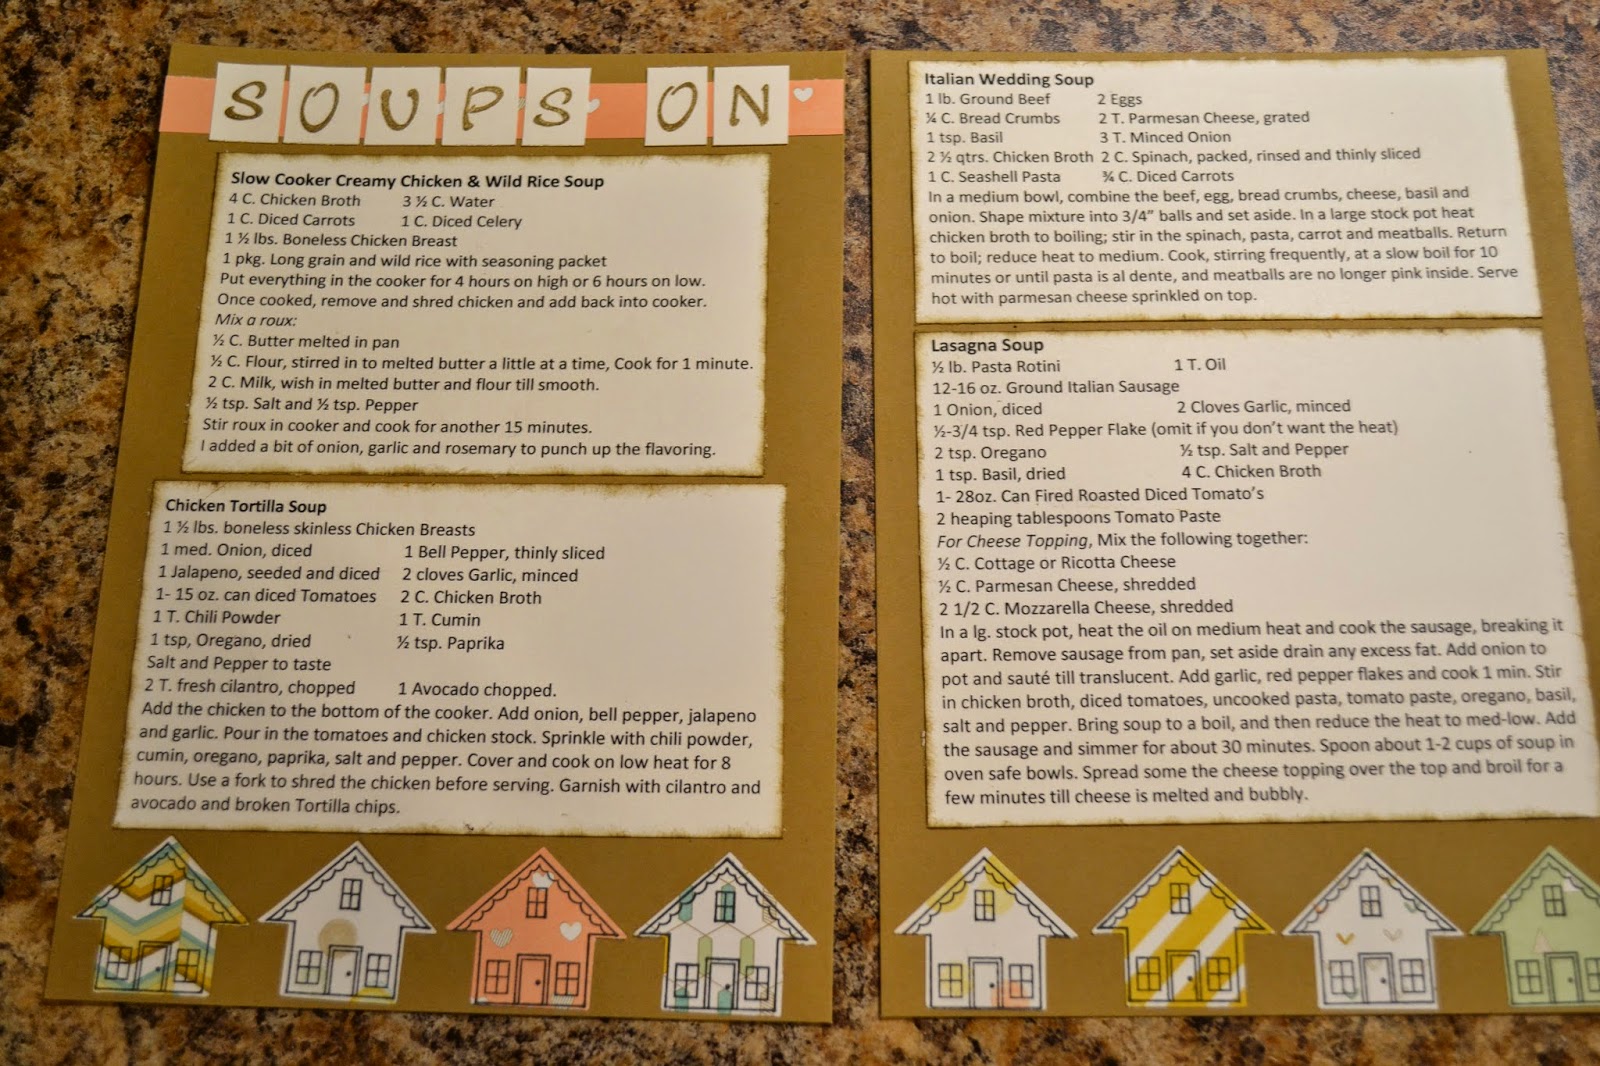 SOUPS ON
Slow Cooker Creamy Chicken & Wild Rice Soup
4 C. Chicken Broth 3 ½ C. Water
1 C. Diced Carrots 1 C. Diced Celery
1 ½ lbs. Boneless Chicken Breast
1 pkg. Long grain and wild rice with seasoning packet
Put everything in the cooker for 4 hours on high or 6 hours on low.
Once cooked, remove and shred chicken and add back into cooker.
Mix a roux:
½ C. Butter melted in pan
½ C. Flour, stirred in to melted butter a little at a time, Cook for 1 minute.
2 C. Milk, wish in melted butter and flour till smooth.
½ tsp. Salt and ½ tsp. Pepper
Stir roux in cooker and cook for another 15 minutes.
I added a bit of onion, garlic and rosemary to punch up the flavoring.
Chicken Tortilla Soup
1 ½ lbs. boneless skinless Chicken Breasts
1 med. Onion, diced 1 Bell Pepper, thinly sliced
1 Jalapeno, seeded and diced 2 cloves Garlic, minced
1- 15 oz. can diced Tomatoes 2 C. Chicken Broth
1 T. Chili Powder 1 T. Cumin
1 tsp, Oregano, dried ½ tsp. Paprika
Salt and Pepper to taste
2 T. fresh cilantro, chopped 1 Avocado chopped.
Add the chicken to the bottom of the cooker. Add onion, bell pepper, jalapeno
and garlic. Pour in the tomatoes and chicken stock. Sprinkle with chili powder,
cumin, oregano, paprika, salt and pepper. Cover and cook on low heat for 8
hours. Use a fork to shred the chicken before serving. Garnish with cilantro and
avocado and broken Tortilla chips.
Italian Wedding Soup
1 lb. Ground Beef 2 Eggs
¼ C. Bread Crumbs 2 T. Parmesan Cheese, grated
1 tsp. Basil 3 T. Minced Onion
2 ½ qtrs. Chicken Broth 2 C. Spinach, packed, rinsed and thinly sliced
1 C. Seashell Pasta ¾ C. Diced Carrots
In a medium bowl, combine the beef, egg, bread crumbs, cheese, basil and
onion. Shape mixture into 3/4" balls and set aside. In a large stock pot heat
chicken broth to boiling; stir in the spinach, pasta, carrot and meatballs. Return
to boil; reduce heat to medium. Cook, stirring frequently, at a slow boil for 10
minutes or until pasta is al dente, and meatballs are no longer pink inside. Serve
hot with parmesan cheese sprinkled on top.
Lasagna Soup
½ lb. Pasta Rotini 1 T. Oil
12-16 oz. Ground Italian Sausage
1 Onion, diced 2 Cloves Garlic, minced
½-3/4 tsp. Red Pepper Flake (omit if you don't want the heat)
2 tsp. Oregano ½ tsp. Salt and Pepper
1 tsp. Basil, dried 4 C. Chicken Broth
1- 28oz. Can Fired Roasted Diced Tomato's
2 heaping tablespoons Tomato Paste
For Cheese Topping, Mix the following together:
½ C. Cottage or Ricotta Cheese
½ C. Parmesan Cheese, shredded
2 1/2 C. Mozzarella Cheese, shredded
In a lg. stock pot, heat the oil on medium heat and cook the sausage, breaking it
apart. Remove sausage from pan, set aside drain any excess fat. Add onion to
pot and sauté till translucent. Add garlic, red pepper flakes and cook 1 min. Stir
in chicken broth, diced tomatoes, uncooked pasta, tomato paste, oregano, basil,
salt and pepper. Bring soup to a boil, and then reduce the heat to med-low. Add
the sausage and simmer for about 30 minutes. Spoon about 1-2 cups of soup in
oven safe bowls. Spread some the cheese topping over the top and broil for a
few minutes till cheese is melted and bubbly.